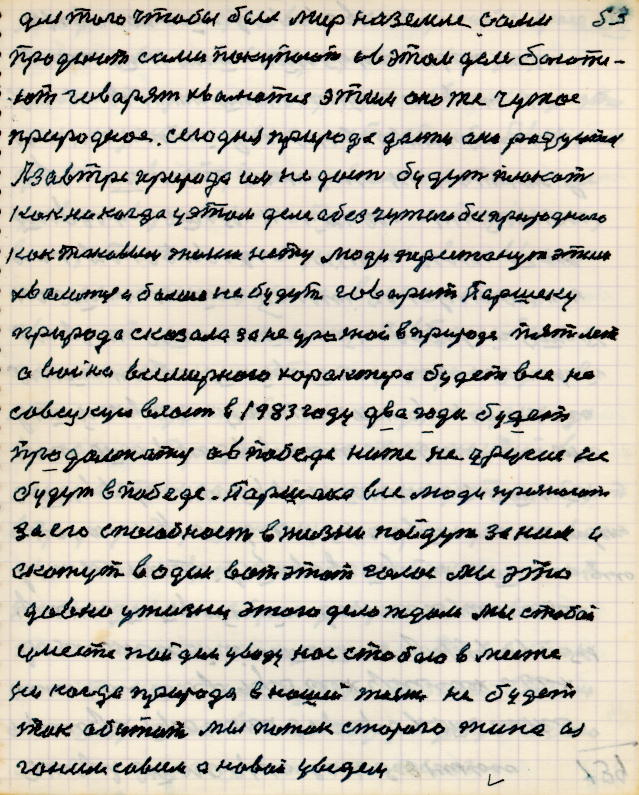 для того чтобы был мир на земле сами 53
продают сами покупают в этом деле боготи-
ют говарят хвалются этим оно же чужое
природное. сегодня природа дасть они радуются
А завтра природа им не даст будут плокат
как никогда у этом деле а без чужого без природного
как таковым жизни нету люди перестанут этим
хвалится и больше не будут говарит Паршеку
природа сказала за не урожай в природе пять лет
а война всемирного характера будет вся на
совецкую власт в 1983 году два года будет
продолжатця а в победе ниже не другие не
будут в победе. Паршека все люди признают
за его способност в жизни пойдут за ним и
скажут в один вот этот голос мы это
давно у жизни этого дела ждали мы с тобой
умести пойдем уводу нас с тобою в месте
ни когда природа в нашей жизни не будет
так обитат мы поток старого типа из
гоним совсем а новой уведем